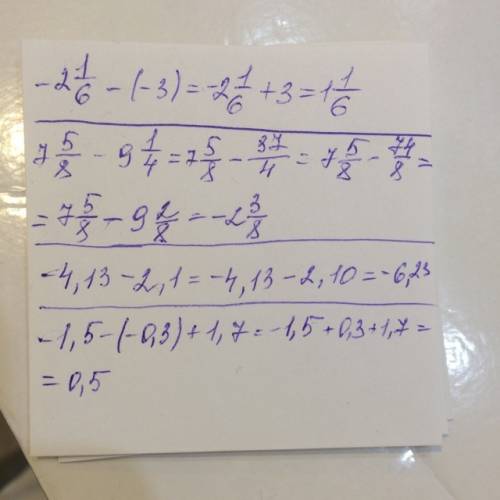 -2 1/6 - (-3) = -2 1/6 + 3 = 1 1/6
7 5/8 - 9 1/4 = 7 5/8 - 37/4 = 7 5/8 - 74/8 =
= 7 5/8 - 9 2/8 = -2 3/8
-4,13 - 2,1 = -4,13 - 2,10 = -6,23
-1,5 - (-0,3) + 1,7 = -1,5 + 0,3 + 1,7 =
= 0,5